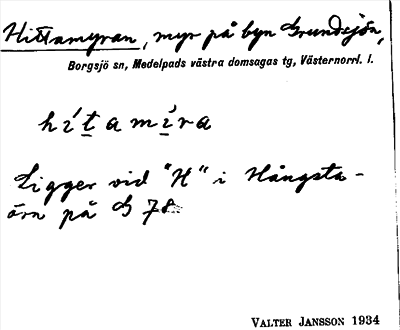 Hittamyran, myr på byn Grundsjön,
Borgsjö sn, Medelpads västra domsagas tg, Västernorrl. l.
hítamı́ra
Ligger vid "H" i Hångsta-
örn på G 78
VALTER JANSSON 1934